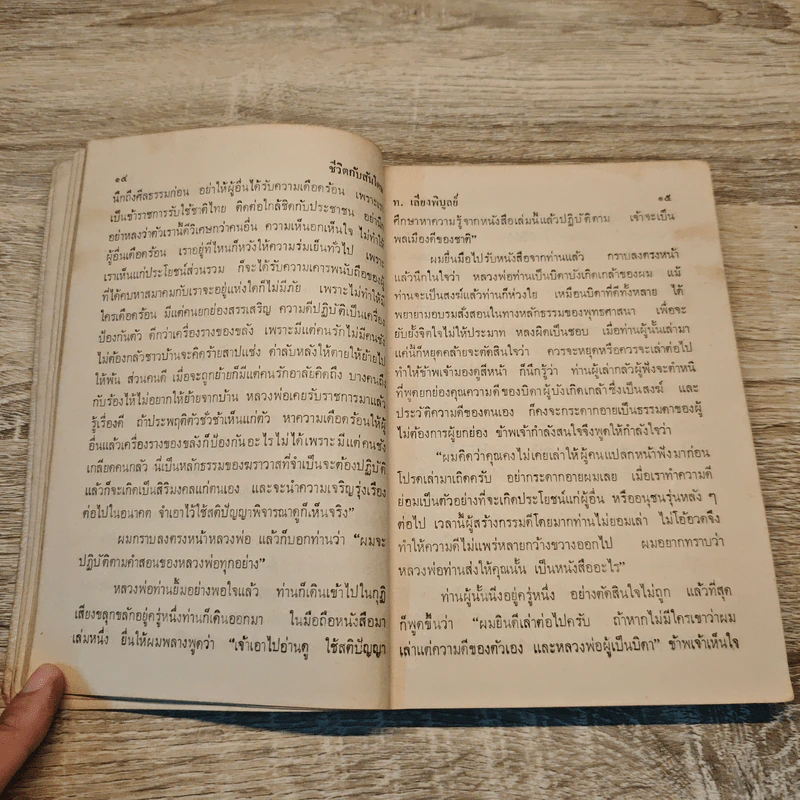 ๑๔ ชีวิตกับสันโดษ
นึกถึงศีลธรรมก่อน อย่าให้ผู้อื่นได้รับความเดือดร้อน เพราะเรา
เป็นข้าราชการรับใช้ชาติไทย ติดต่อใกล้ชิดกับประชาชน อย่านึก
อย่าหลงว่าตัวเรานี้ดีวิเศษกว่าคนอื่น ความเห็นอกเห็นใจ ไม่ทำให้
ผู้อื่นเดือดร้อน เราอยู่ที่ไหนก็หวังให้ความร่มเย็นทั่วไป เพราะ
เราเห็นแก่ประโยชน์ส่วนรวม ก็จะได้รับความเคารพนับถือของผู้
ที่ได้คบหาสมาคมกับเราจะอยู่แห่งใดก็ไม่มีภัย เพราะไม่ทำให้ผู้
ใดเดือดร้อน มีแต่คนยกย่องสรรเสริญ ความดีปฏิบัติเป็นเครื่อง
ป้องกันตัว ดีกว่าเครื่องรางของขลัง เพราะมีแต่คนรักไม่มีคนชัง
ไม่ต้องกลัวชาวบ้านจะคิดร้ายสาปแช่ง ด่าลับหลังให้ตายให้ย้ายไป
ให้พ้น ส่วนคนดี เมื่อจะถูกย้ายก็มีแต่คนรักอาลัยคิดถึง บางคนถึง
กับร้องไห้ไม่อยากให้ย้ายจากบ้าน หลวงพ่อเคยรับราชการมาแล้ว
รู้เรื่องดี ถ้าประพฤติตัวชั่วช้าเห็นแก่ตัว หาความเดือดร้อนให้ผู้
อื่นแล้วเครื่องรางของขลังก็ป้องกันอะไรไม่ได้เพราะมีแต่คนชัง
เกลียดคนกลัว นี่เป็นหลักธรรมของฆราวาสที่จำเป็นจะต้องปฏิบัติ
แล้วก็จะเกิดเป็นสิริมงคลแก่ตนเอง และจะนำความเจริญรุ่งเรือง
ต่อไปในอนาคต จำเอาไว้ใช้สติปัญญาพิจารณาดูก็เห็นจริง”
ผมกราบลงตรงหน้าหลวงพ่อ แล้วก็บอกท่านว่า “ผมจะ
ปฏิบัติตามคำสอนของหลวงพ่อทุกอย่าง”
หลวงพ่อท่านยิ้มอย่างพอใจแล้ว ท่านก็เดินเข้าไปในกุฏิ
เสียงขลุกขลักอยู่ครู่หนึ่งท่านก็เดินออกมา ในมือถือหนังสือมา
เล่มหนึ่ง ยื่นให้ผมพลางพูดว่า “เจ้าเอาไปอ่านดู ใช้สติปัญญา
ท. เลียงพิบูลย์ ๑๕
ศึกษาหาความรู้จากหนังสือเล่มนี้แล้วปฏิบัติตาม เจ้าจะเป็น
พลเมืองดีของชาติ”
ผมยื่นมือไปรับหนังสือจากท่านแล้ว กราบลงตรงหน้า
แล้วนึกในใจว่า หลวงพ่อท่านเป็นบิดาบังเกิดเกล้าของผม แม้
ท่านจะเป็นสงฆ์แล้วท่านก็ห่วงใย เหมือนบิดาที่ดีทั้งหลาย ได้
พยายามอบรมสั่งสอนในทางหลักธรรมของพุทธศาสนา เพื่อจะ
ยับยั้งจิตใจไม่ให้ประมาท หลงผิดเป็นชอบ เมื่อท่านผู้นั้นเล่ามา
แค่นี้ก็หยุดคล้ายจะตัดสินใจว่า ควรจะหยุดหรือควรจะเล่าต่อไป
ทำให้ข้าพเจ้ามองดูสีหน้า ก็นึกรู้ว่า ท่านผู้เล่ากลัวผู้ฟังจะตำหนิ
ที่พูดยกย่องคุณความดีของบิดาผู้บังเกิดเกล้าซึ่งเป็นสงฆ์ และ
ประวัติความดีของตนเอง ก็คงจะกระดากอายเป็นธรรมดาของผู้
ไม่ต้องการผู้ยกย่อง ข้าพเจ้ากำลังสนใจจึงพูดให้กำลังใจว่า
“ผมคิดว่าคุณคงไม่เคยเล่าให้ผู้คนแปลกหน้าฟังมาก่อน
โปรดเล่ามาเถิดครับ อย่ากระดากอายผมเลย เมื่อเราทำความดี
ย่อมเป็นตัวอย่างที่จะเกิดประโยชน์แก่ผู้อื่น หรืออนุชนรุ่นหลัง ๆ
ต่อไป เวลานี้ผู้สร้างกรรมดีโดยมากท่านไม่ยอมเล่า ไม่โอ้อวดจึง
ทำให้ความดีไม่แพร่หลายกว้างขวางออกไป ผมอยากทราบว่า
หลวงพ่อท่านส่งให้คุณนั้น เป็นหนังสืออะไร”
ท่านผู้นั้นนิ่งอยู่ครู่หนึ่ง อย่างตัดสินใจไม่ถูก แล้วที่สุด
ก็พูดขึ้นว่า “ผมยินดีเล่าต่อไปครับ ถ้าหากไม่มีใครเขาว่าผม
เล่าแต่ความดีของตัวเอง และหลวงพ่อผู้เป็นบิดา” ข้าพเจ้าเห็นใจ